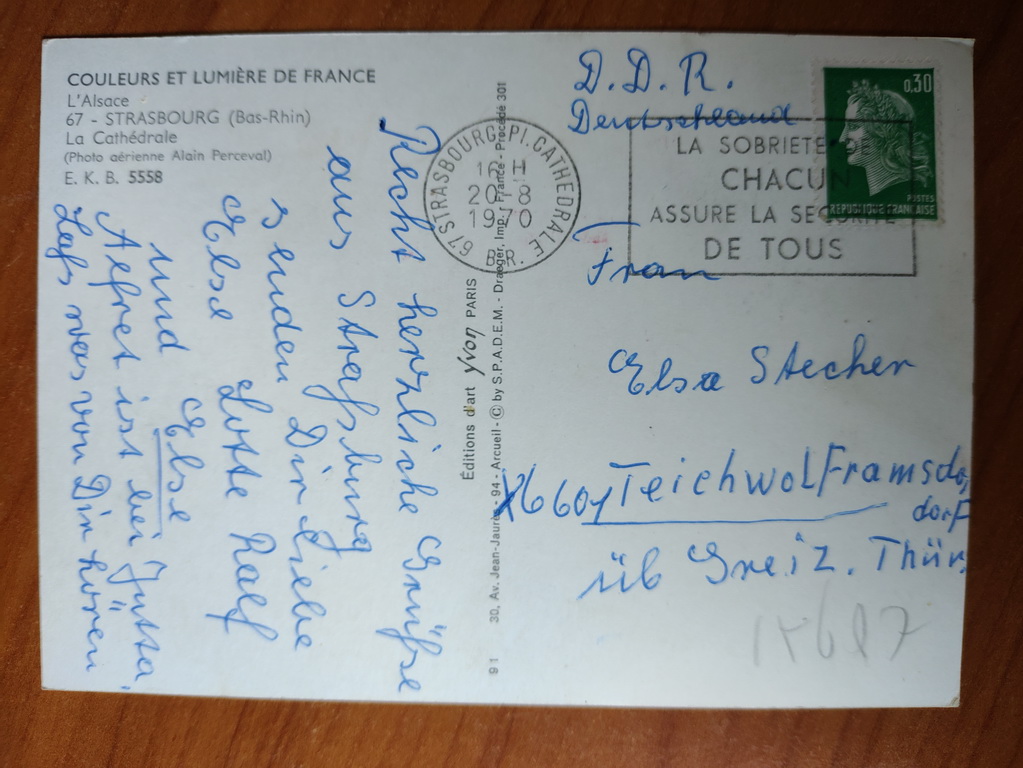 COULEURS ET LUMIÈRE DE FRANCE
L'Alsace
67 - STRASBOURG (Bas-Rhin)
La Cathédrale
(Photo aérienne Alain Perceval)
E. K. B. 5558
Recht herzliche Grüße
aus Straßburg
senden Dir liebe
Else Lotte Ralf
und Else
Aefret ist bei Jutta,
Laß was von Dir hören
Éditions d'art Yvon PARIS
91 30, Av. Jean-Jaurès - 94 - Arcueil - © by S.P.A.D.E.M. - Draeger, Imp. - France - Procédé 301
67 STRASBOURG PL. CATHEDRALE
16 H
20-8
1970
B.R.
LA SOBRIETE DE
CHACUN
ASSURE LA SECURITE
DE TOUS
0,30
POSTES
REPUBLIQUE FRANÇAISE
D.D.R.
Deutschland
Frau
Elsa Stecher
X6601 Teichwolframsdo
dorf
üb Greiz. Thür.